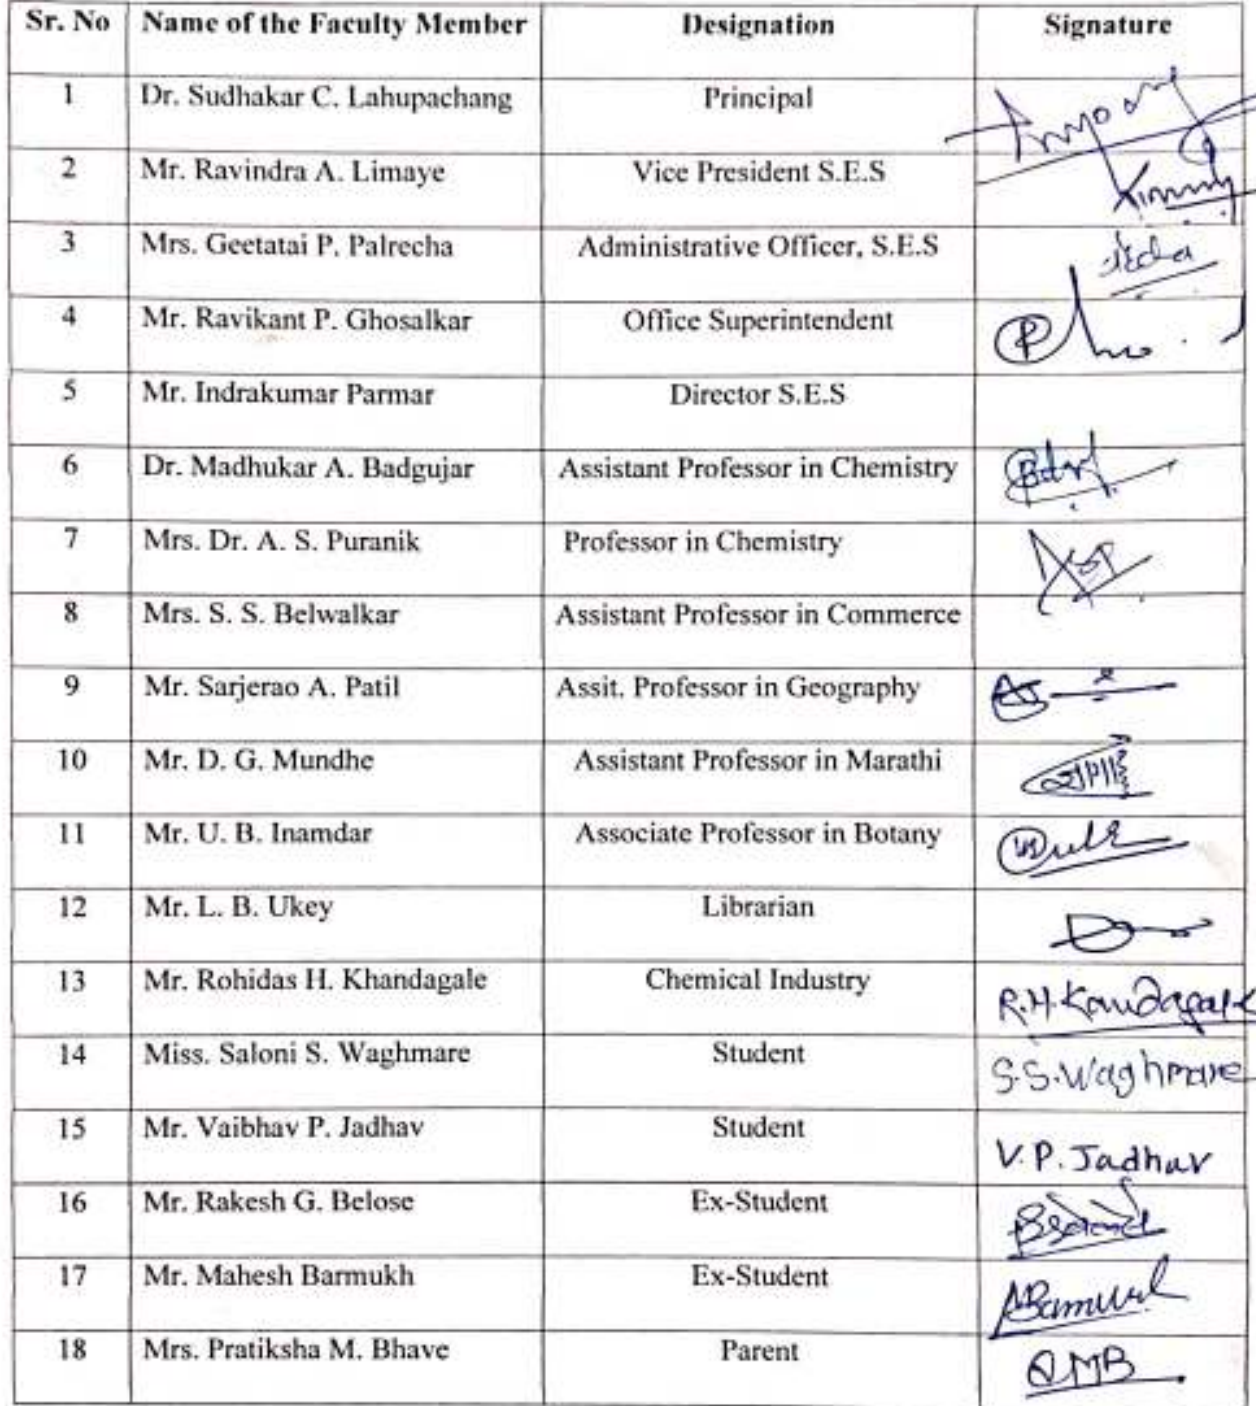 Sr. No Name of the Faculty Member Designation Signature
1 Dr. Sudhakar C. Lahupachang Principal
2 Mr. Ravindra A. Limaye Vice President S.E.S
3 Mrs. Geetatai P. Palrecha Administrative Officer, S.E.S
4 Mr. Ravikant P. Ghosalkar Office Superintendent
5 Mr. Indrakumar Parmar Director S.E.S
6 Dr. Madhukar A. Badgujar Assistant Professor in Chemistry
7 Mrs. Dr. A. S. Puranik Professor in Chemistry
8 Mrs. S. S. Belwalkar Assistant Professor in Commerce
9 Mr. Sarjerao A. Patil Assit. Professor in Geography
10 Mr. D. G. Mundhe Assistant Professor in Marathi
11 Mr. U. B. Inamdar Associate Professor in Botany
12 Mr. L. B. Ukey Librarian
13 Mr. Rohidas H. Khandagale Chemical Industry R.H.Kandagale
14 Miss. Saloni S. Waghmare Student S.S.Waghmare
15 Mr. Vaibhav P. Jadhav Student V.P. Jadhav
16 Mr. Rakesh G. Belose Ex-Student
17 Mr. Mahesh Barmukh Ex-Student
18 Mrs. Pratiksha M. Bhave Parent